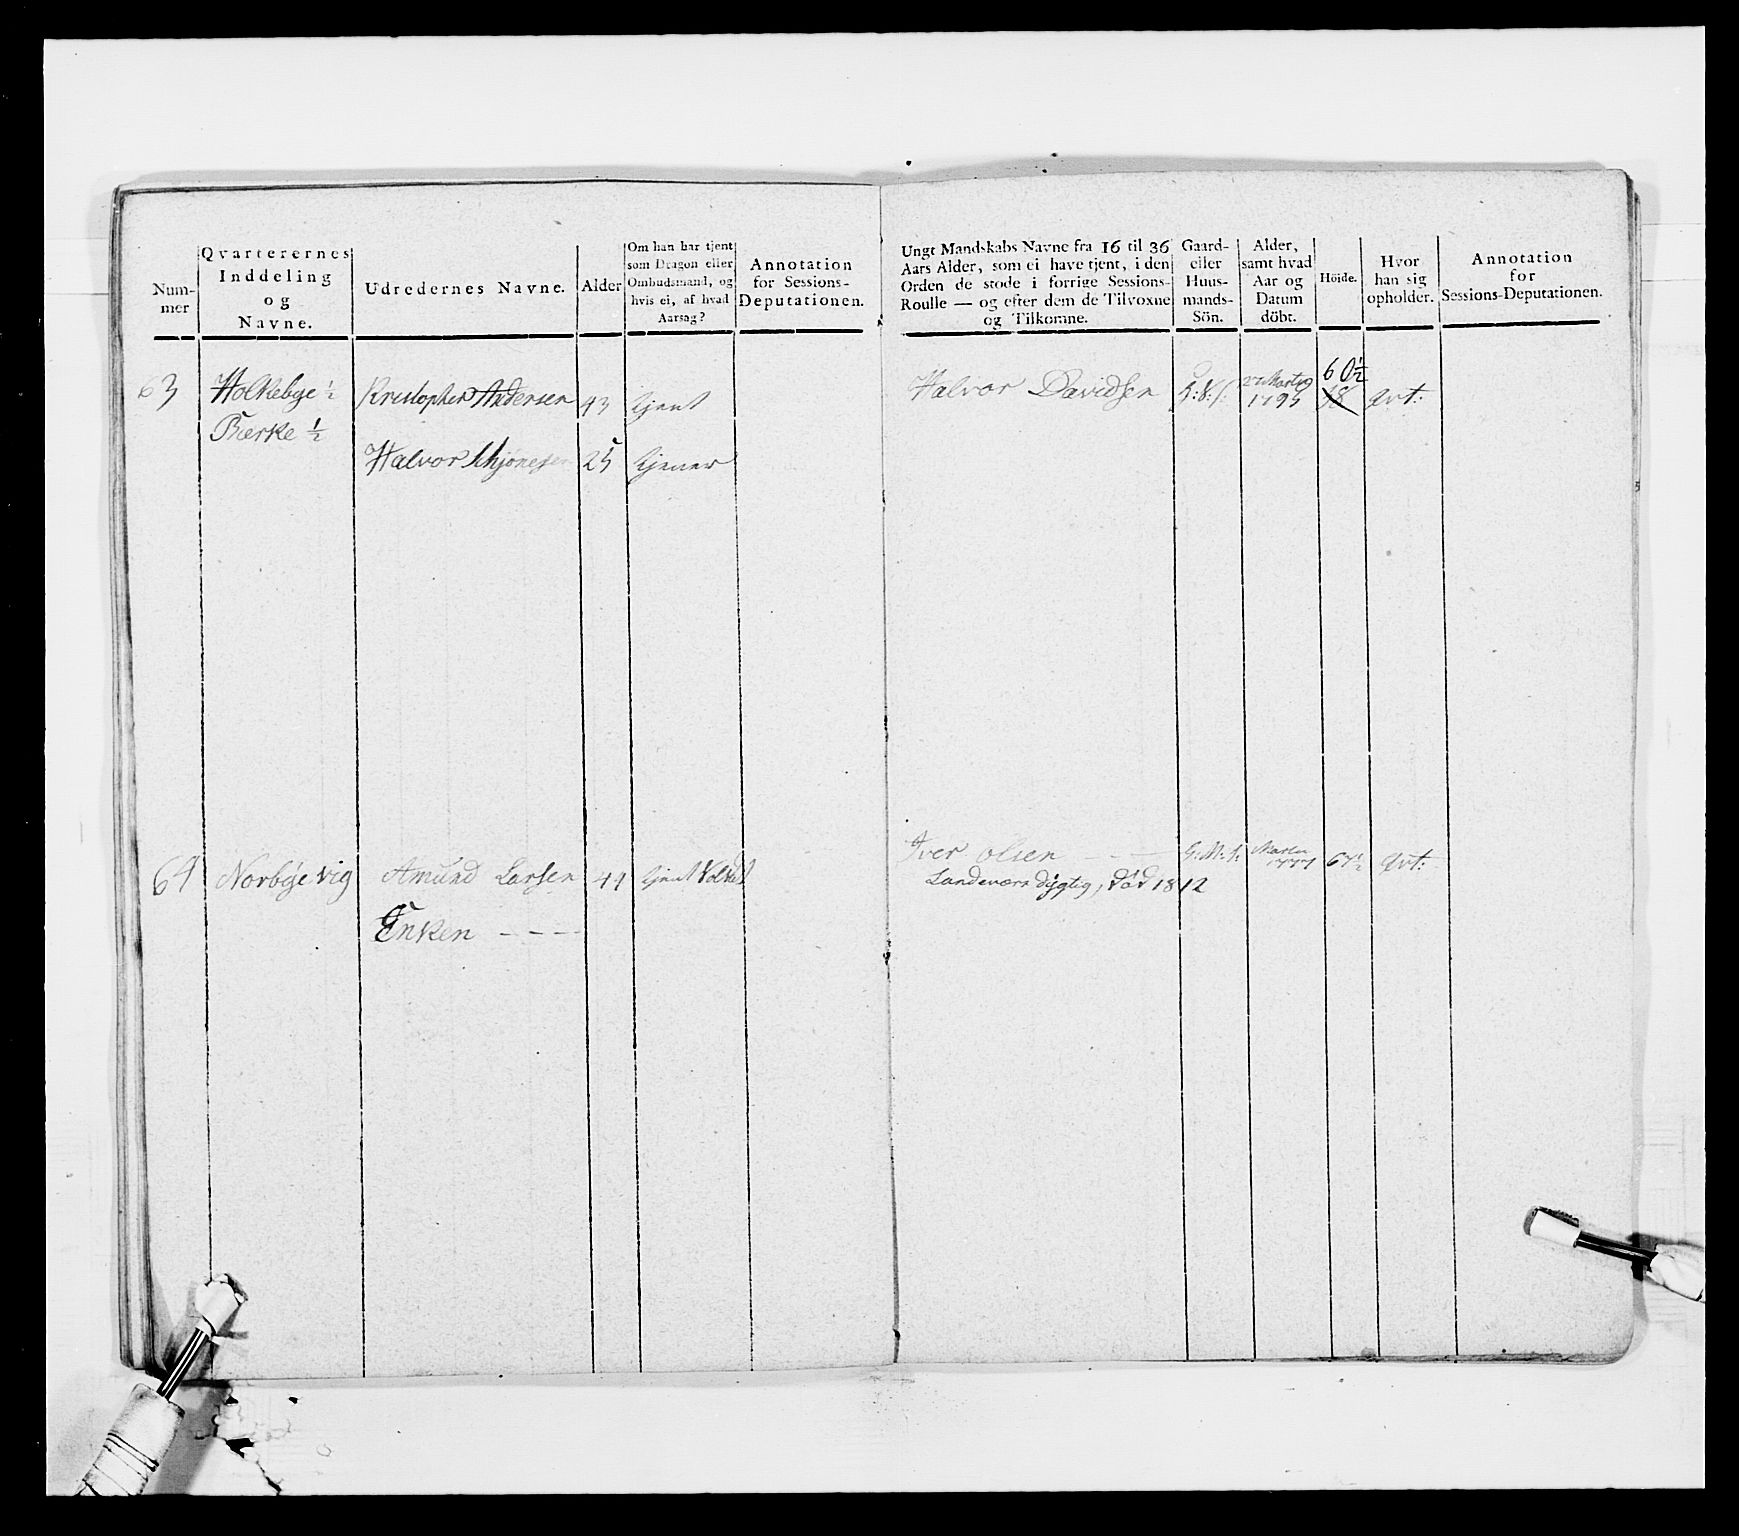 Num-
mer
Qvarterernes
Inddeling
og
Navne.
Udredernes Navne.
Alder
Om han har tjent
som Dragon eller
Ombudsmand, og
hvis ei, af hvad
Aarsag?
Annotation
for Sessions-
Deputationen.
63
Holkebye ½
Kristopher Andersen
43
tjent
Bierke ½
Halvor
25
tjener
64
Norbye vig
Amund Larsen
44
tjent
Enken - - -
Ungt Mandskabs Navne fra 16 til 36
Aars Alder, som ei have tjent, i den
Orden de stode i forrige Sessions-
Roulle — og efter dem de Tilvoxne
og Tilkomne.
Gaard-
eller
Huus-
mands-
Sön.
Alder,
samt hvad
Aar og
Datum
döbt.
Höide.
Hvor
han sig
opholder.
Annotation
for
Sessions-Deputationen.
60½
Halvor Davidsen
Qvt:
Iver Olsen - - -
G: M: S:
1777
67½
Qvt:
Landeværn dygtig, död 1812